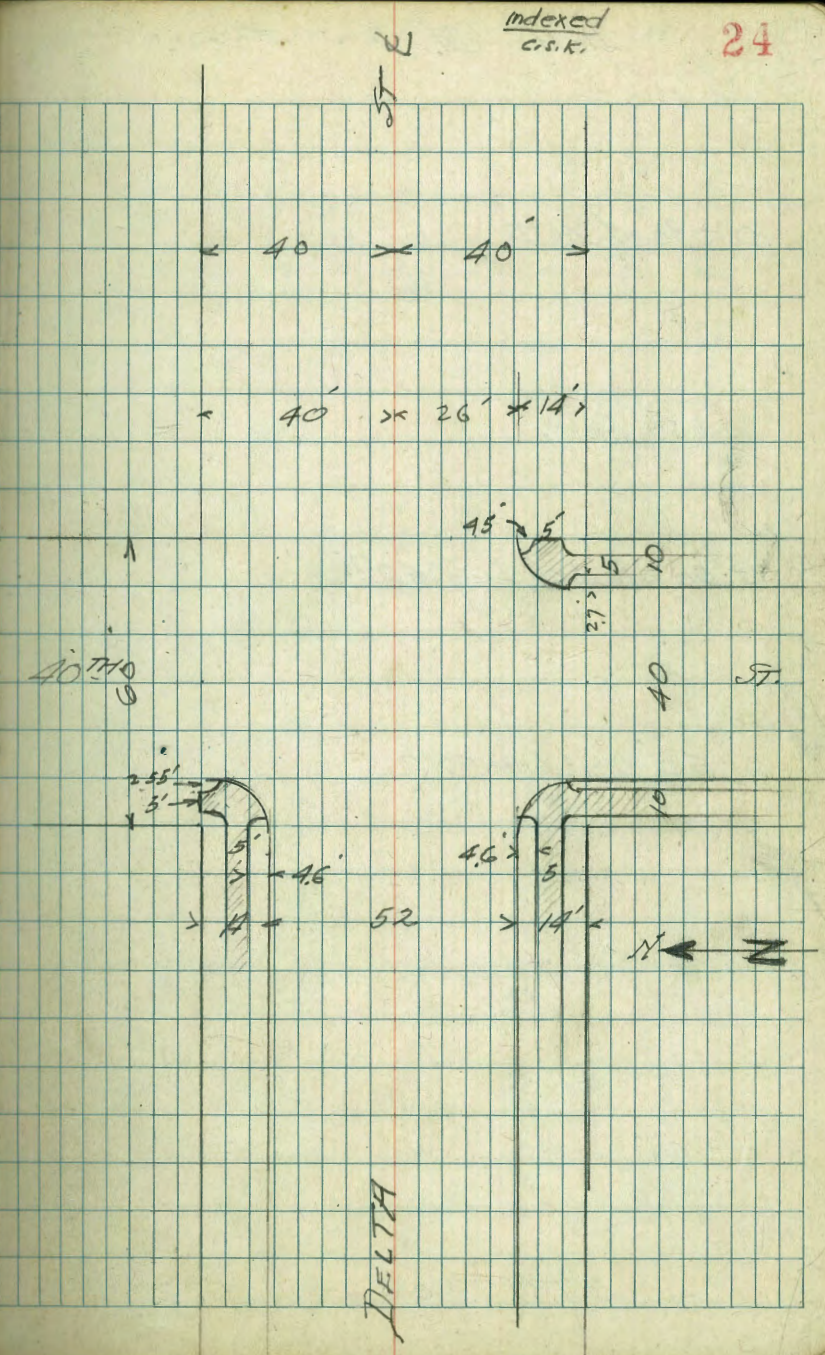 indexed
c.s.k.
24
ST ℄
40 40'
40' 26' 14'
4.5' 5'
5 10
2.7'
40TH ST.
60
40
2.55'
5'
10
5' 4.6'
4.6' 5
14 52 14'
N
DELTA